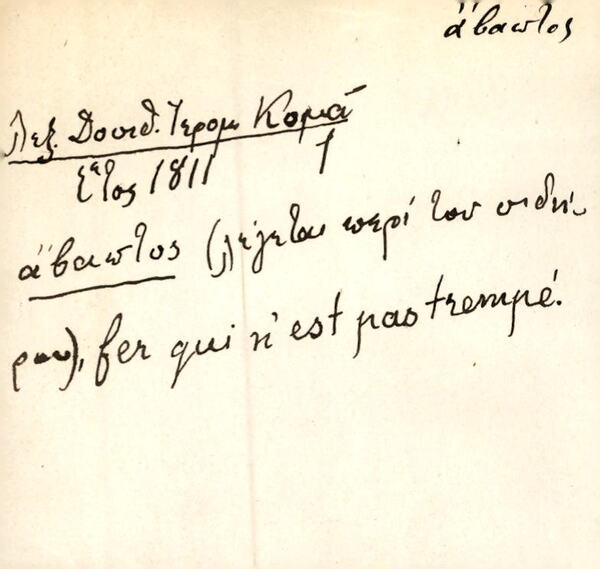 ἄβαπτος
Λεξ. Δουιθ. Ἱερομ. Κομᾶ
ἔτος 1811 1
ἄβαπτος (λέγεται περί του σιδή-
ρου), fer qui n'est pas trempé.